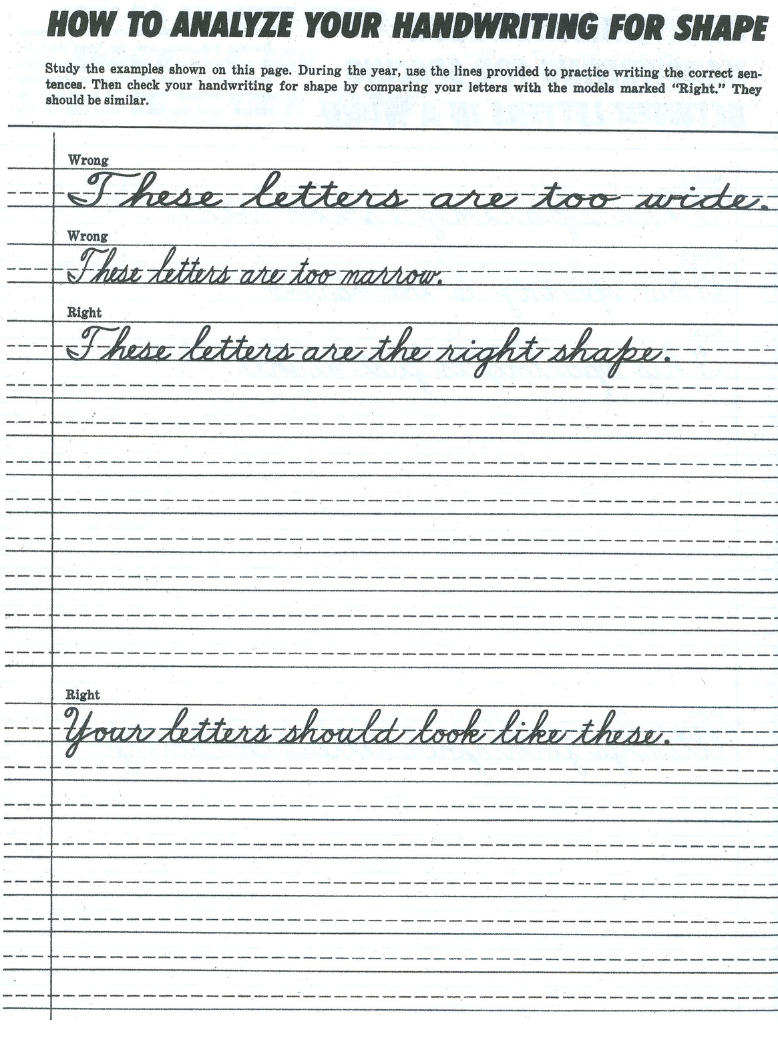 HOW TO ANALYZE YOUR HANDWRITING FOR SHAPE
Study the examples shown on this page. During the year, use the lines provided to practice writing the correct sen-
tences. Then check your handwriting for shape by comparing your letters with the models marked “Right.” They
should be similar.
Wrong
These letters are too wide.
Wrong
These letters are too narrow.
Right
These letters are the right shape.
Right
Your letters should look like these.